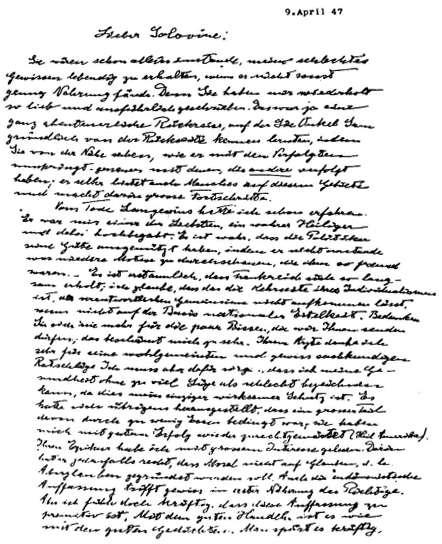 9.April 47
Lieber Solovine!
Sie wären schon allein imstande, mein schlechtes
Gewissen lebendig zu erhalten, wenn es nicht sonst
genug Nahrung fände. Denn Sie haben mir wiederholt
so lieb und ausführlich geschrieben. Das war ja eine
ganz abenteuerliche Rückreise, auf der Sie Onkel Sam
gründlich von der Rückseite kennen lernten, indem
Sie von der Nähe sahen, wie er mit den Verfolgten
umspringt - genauer mit denen, die andere verfolgt
haben; er selber leistet auch Manches auf diesem Gebiete
und macht darin grosse Fortschritte.
Vom Tode Langevins hatte ich schon erfahren.
Er war mir einer der Liebsten, ein wahrer Heiliger
und dabei hochbegabt. Es ist wahr, dass die Politiker
seine Güte ausgenützt haben, indem er nicht imstande
war niedere Motive zu durchschauen, die ihm so fremd
waren. - Es ist erstaunlich, dass Frankreich sich so lang-
sam erholt; ich glaube, dass das die Kehrseite ihres Individualismus
ist, der verantwortlichen Gemeinsinn nicht aufkommen lässt,
wenn nicht auf der Basis nationaler Eitelkeit. Bedanken
Sie sich nie mehr für die paar Bissen, die wir Ihnen senden
dürfen; das beschämt mich zu sehr. Ihnen danke ich
sehr für seine wohlgemeinten und gewiss sachkundigen
Ratschläge. Ich muss aber dafür sorgen, dass ich meine Ge-
sundheit ohne zu viel Lüge als schlecht bezeichnen
kann, da dies mein einziger wirksamer Schutz ist. Es
hatte sich übrigens herausgestellt, dass ein grosser Teil
davon durch zu wenig Essen bedingt war; sie haben
mich mit gutem Erfolg wieder zurechtgemästet
Ihren Epikur habe ich mit grossem Interesse gelesen. Der
hatte jedenfalls recht, dass Moral nicht auf Glauben, d. h.
Aberglauben gegründet werden soll. Auch die eudämonistische
Auffassung trifft gewiss in erster Näherung das Richtige.
ich fühle doch kräftig, dass diese Auffassung zu
primitiv ist. Mit dem guten Handeln ist es wie
mit dem guten Gedichte. Man spürt es kräftig,